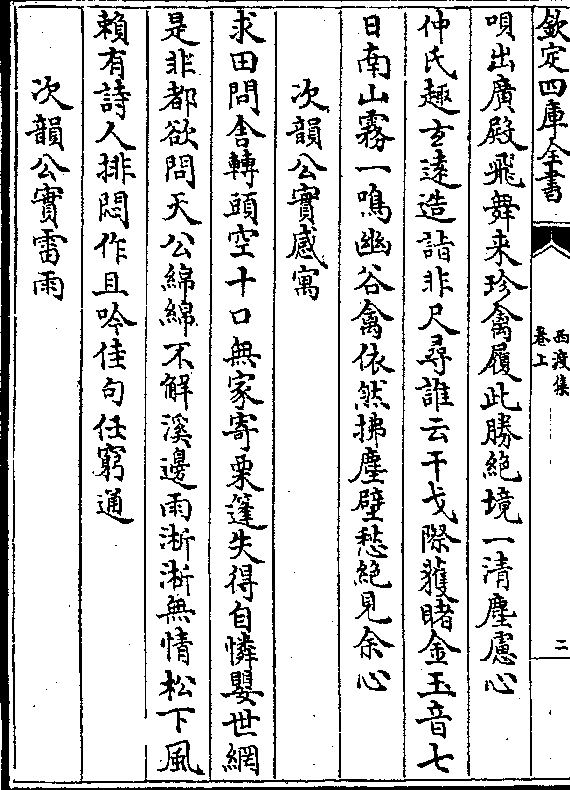 欽定四庫全書
西渡集
卷上
二
唄出廣殿飛舞来珍禽履此勝絶境一清塵慮心
仲氏趣玄遠造詣非尺尋誰云干戈際獲睹金玉音七
日南山霧一鳴幽谷禽依然拂塵壁愁絶見余心
次韻公實感寓
求田問舎轉頭空十口無家寄栗蓬失得自憐嬰世網
是非都欲問天公綿綿不解溪邊雨淅淅無情松下風
賴有詩人排悶作且吟佳句任窮通
次韻公實雷雨